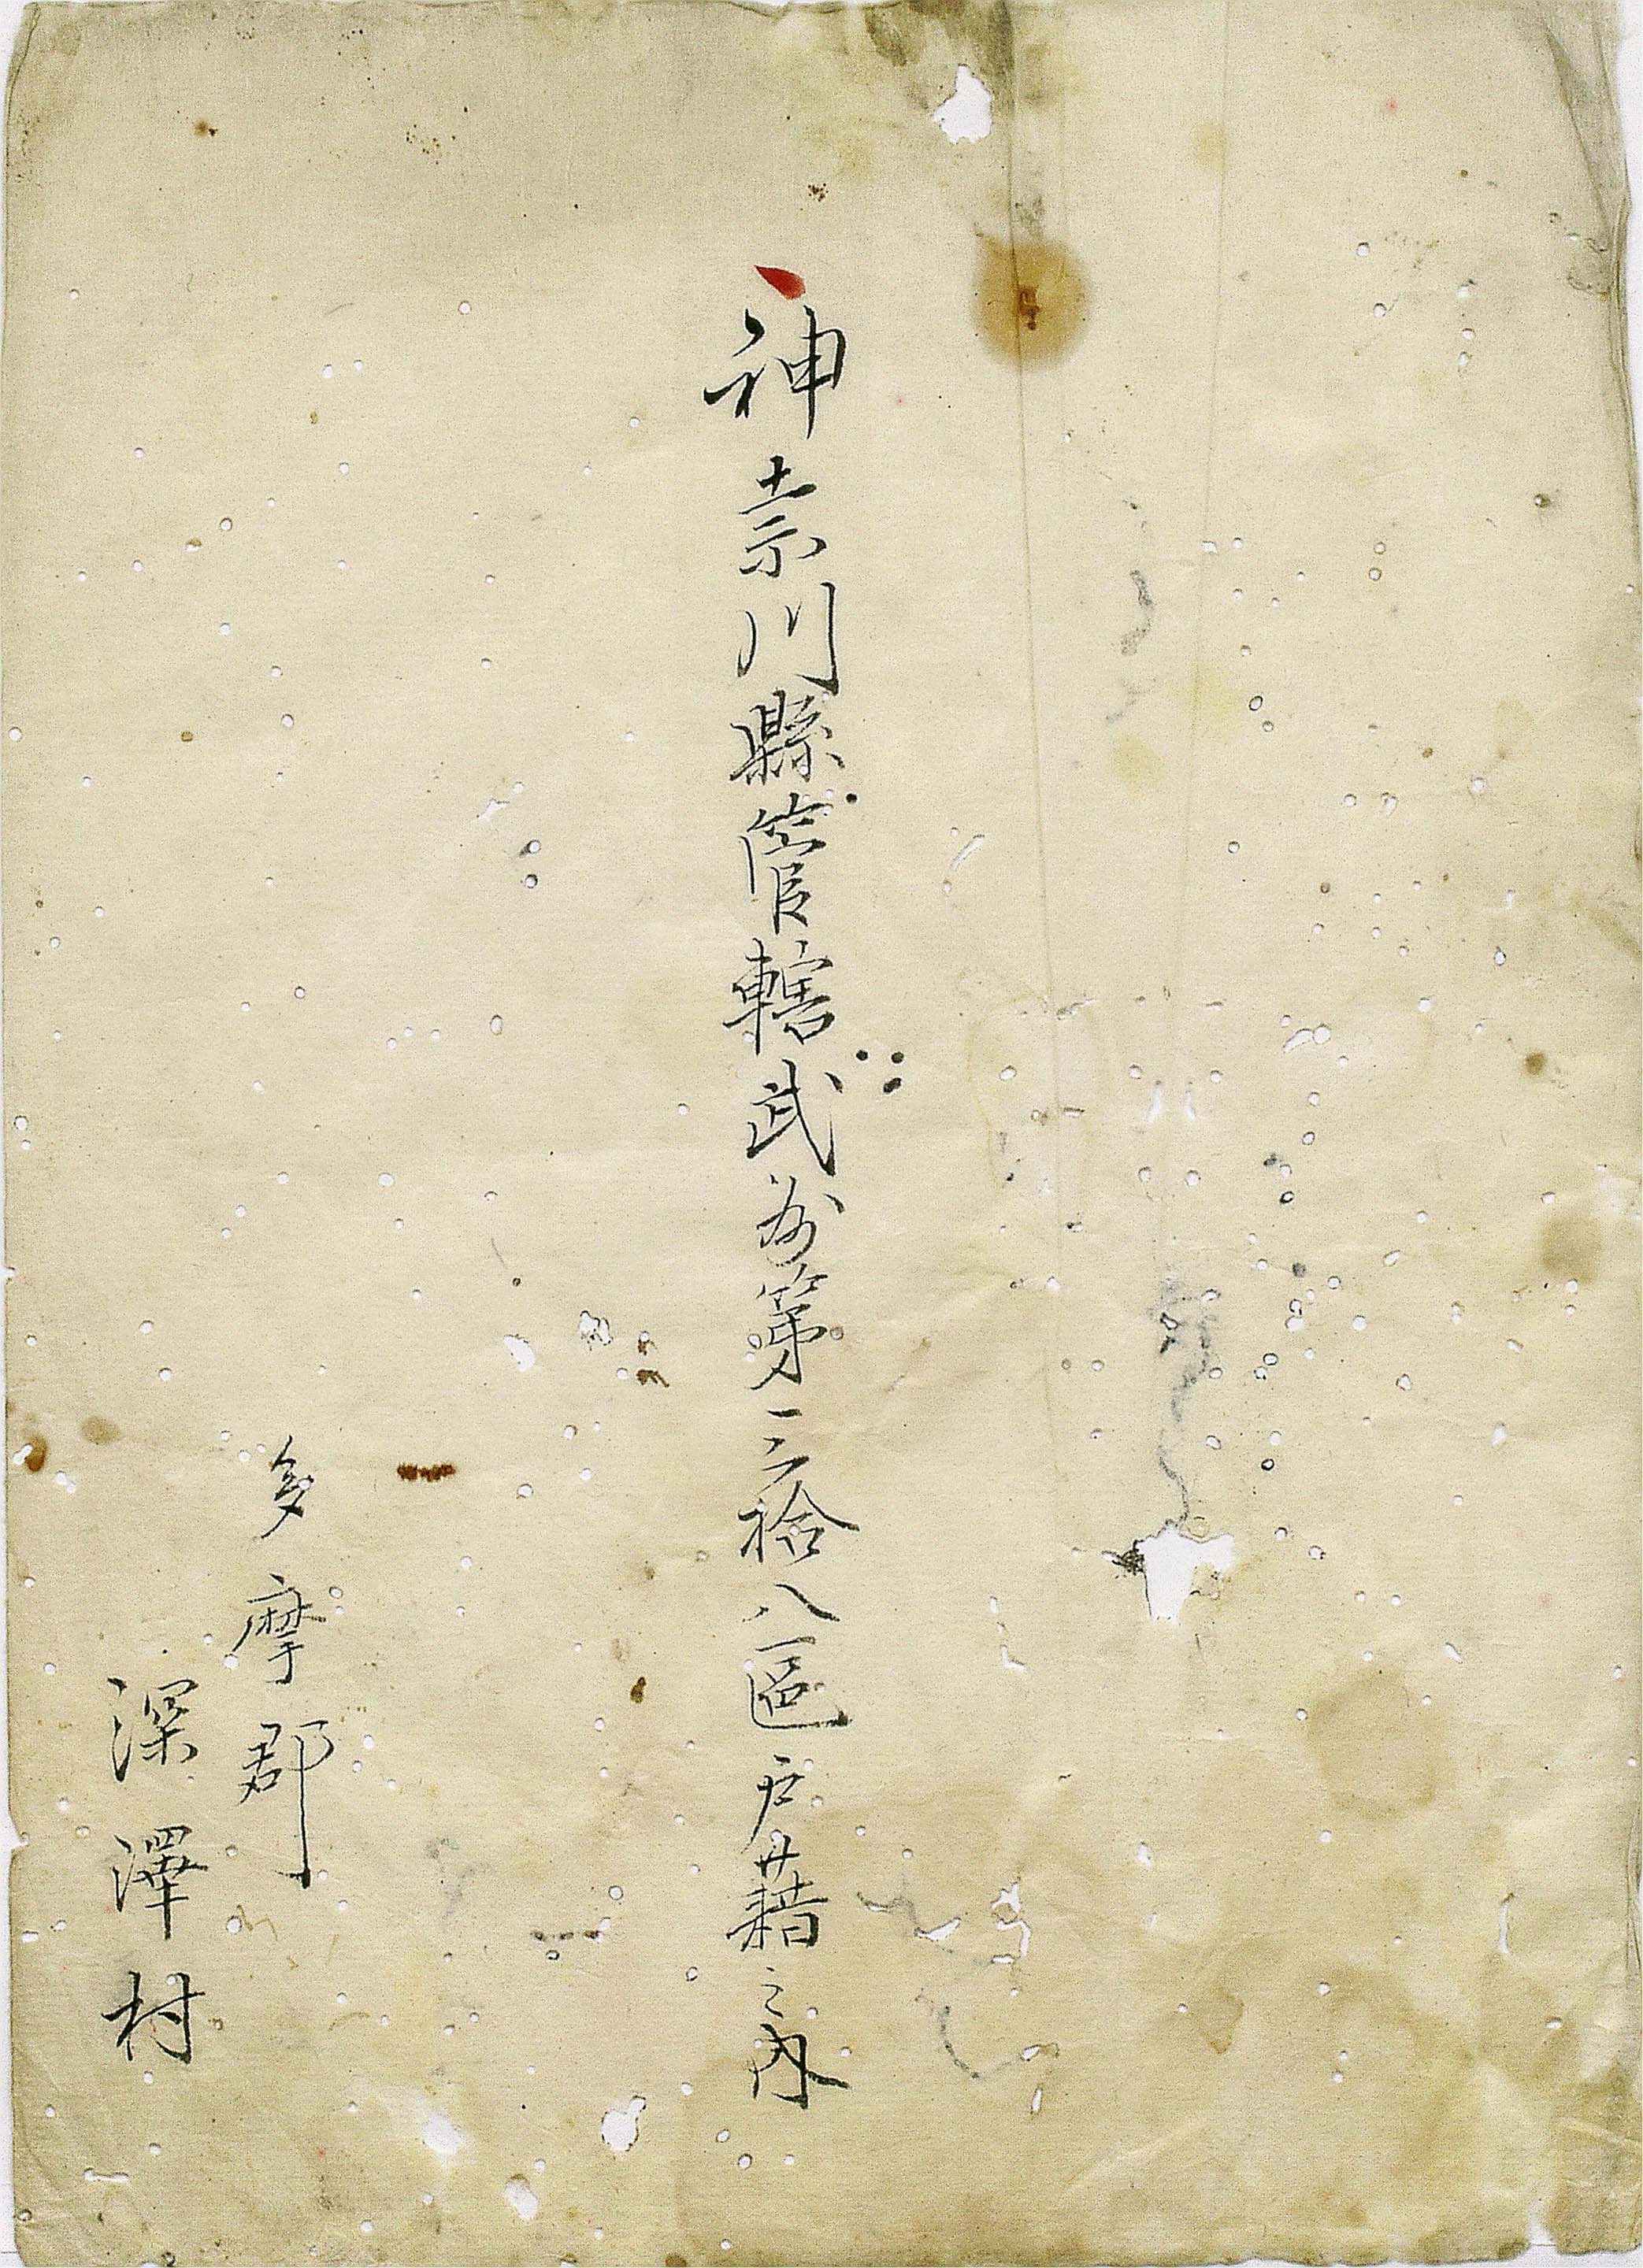 神奈川縣管轄武州第三拾八區戸藉之内
多摩郡
深澤村